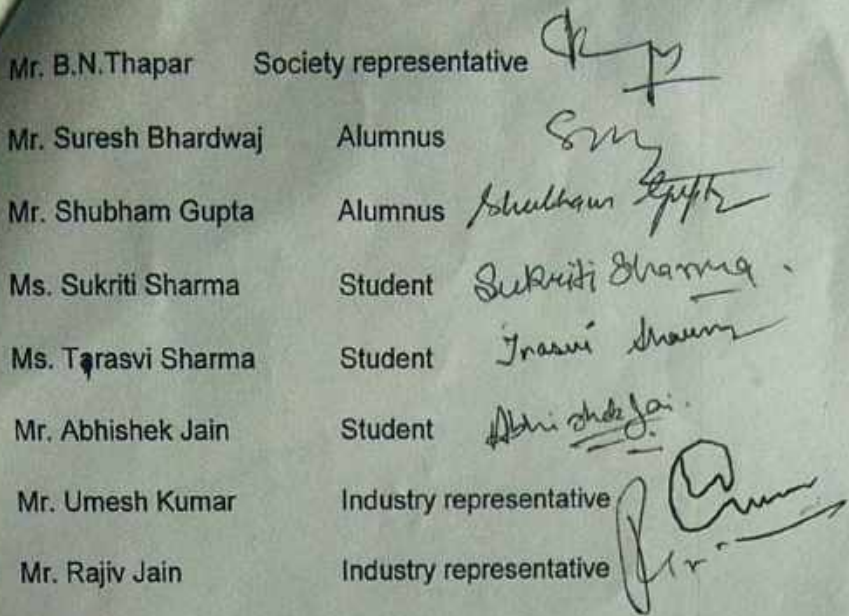 Mr. B.N.Thapar Society representative
Mr. Suresh Bhardwaj Alumnus
Mr. Shubham Gupta Alumnus Shubham Gupta
Ms. Sukriti Sharma Student Sukriti Sharma.
Ms. Tarasvi Sharma Student
Mr. Abhishek Jain Student Abhishek Jai.
Mr. Umesh Kumar Industry representative
Mr. Rajiv Jain Industry representative